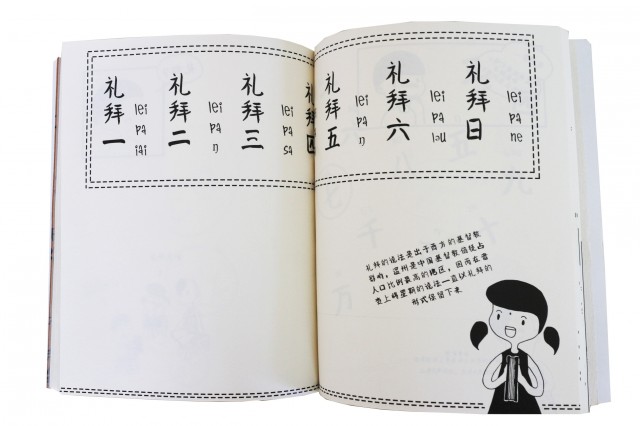 礼拜一
lei pa iai
礼拜二
lei pa ŋ
礼拜三
lei pa sa
礼拜四
礼拜五
lei pa ŋ
礼拜六
lei pa ləu
礼拜日
lei pa ne
礼拜的说法是出于西方的基督教
影响，温州是中国基督教信徒占
人口比例最高的地区，因而在
上将星期的说法一直以礼拜的
形式保留下来